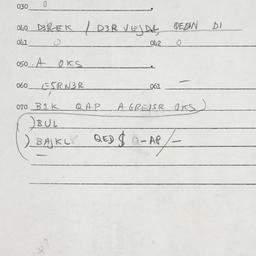 030 0
040 D3REK / D3R VEJDL DEDIN DI
041 0 042 0
050 A OKS
060 E5RN3R 061 —
070 B1K QAP AGREJSR OKS)
) BUL
) BAJKL QED $ -AP/-
—